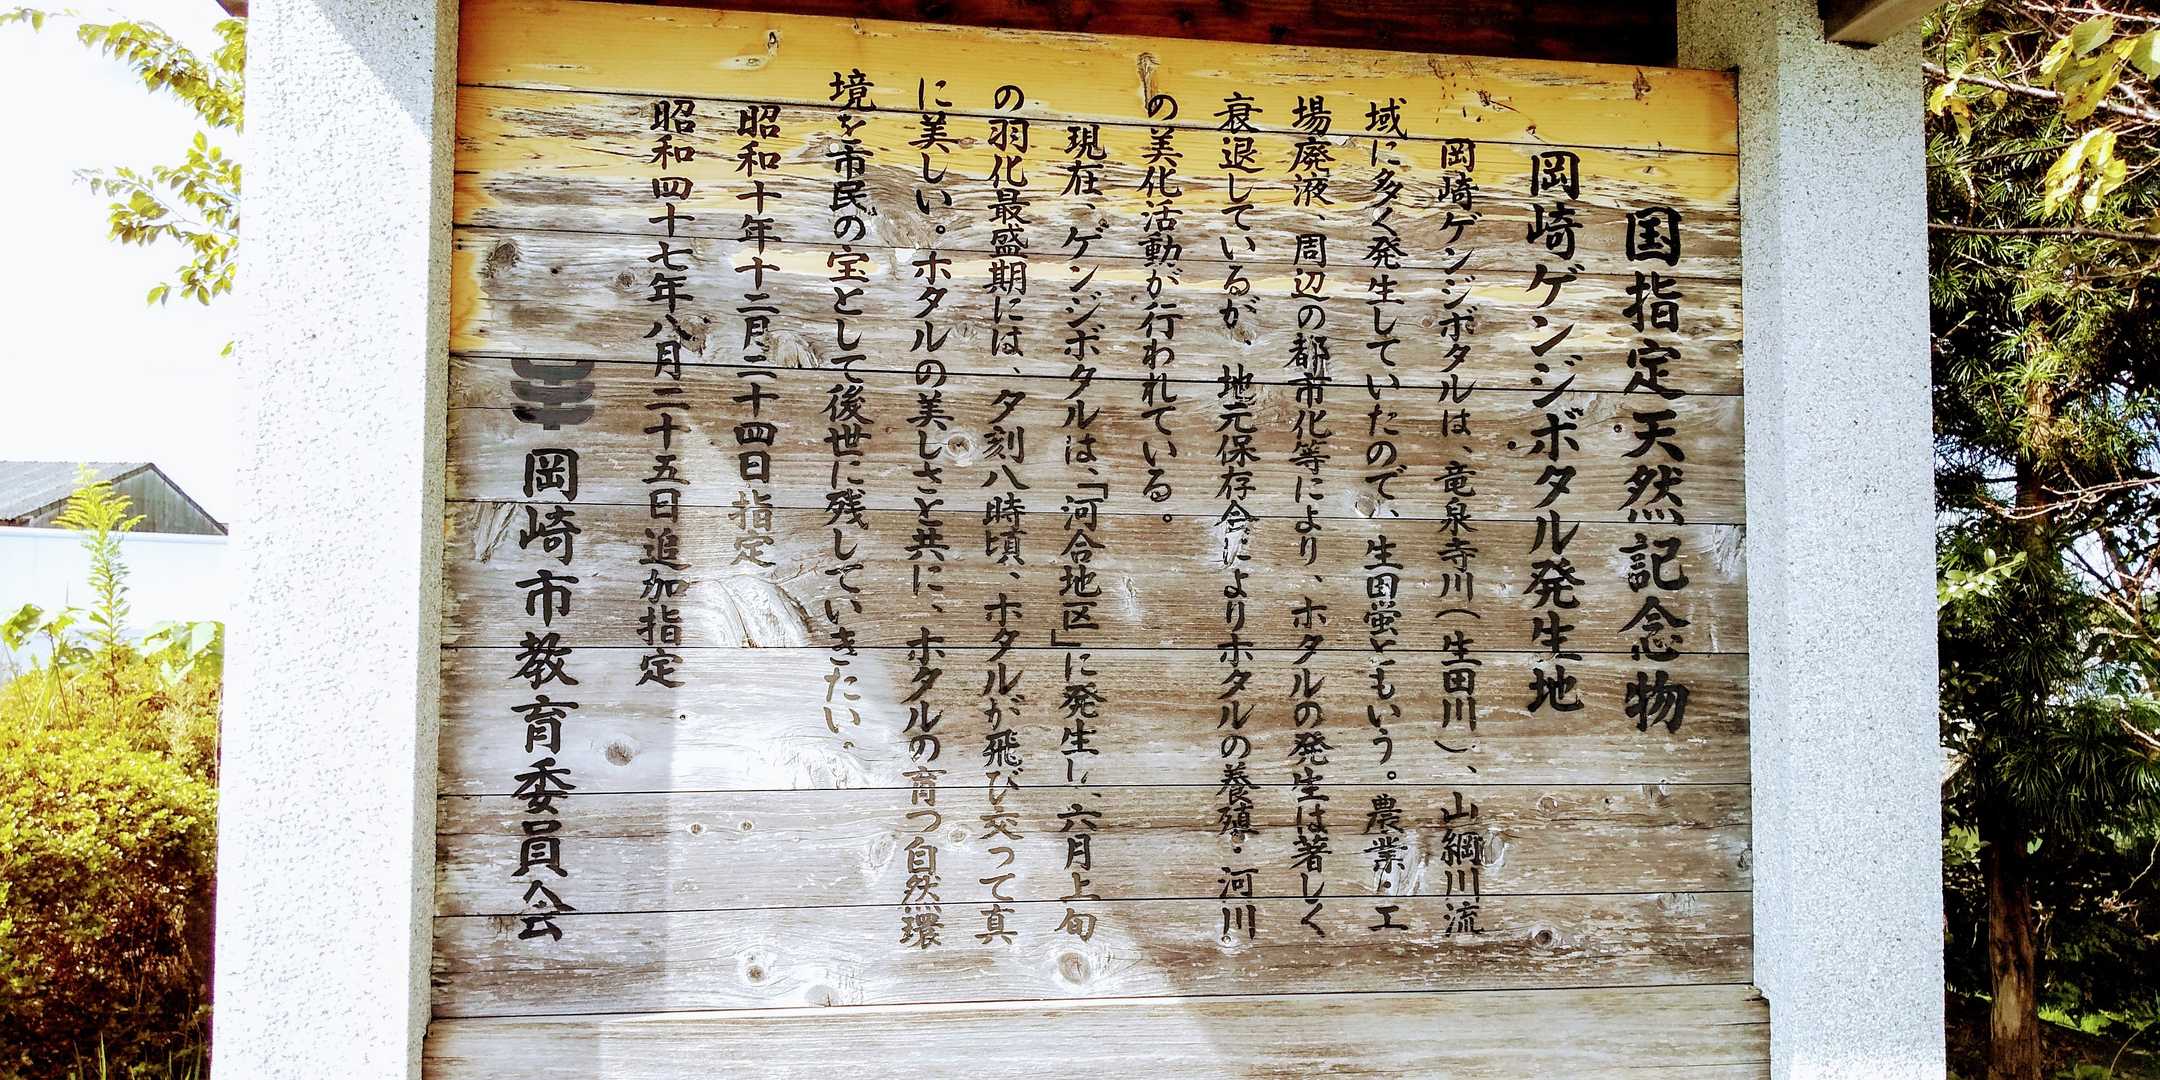 国指定天然記念物
岡崎ゲンジボタル発生地
岡崎ゲンジボタルは、竜泉寺川（生田川）、山綱川流
域に多く発生していたので、生田蛍ともいう。農業・工
場廃液、周辺の都市化等により、ホタルの発生は著しく
衰退しているが、地元保存会によりホタルの養殖・河川
の美化活動が行われている。
現在、ゲンジボタルは、「河合地区」に発生し、六月上旬
の羽化最盛期には、夕刻八時頃、ホタルが飛び交って真
に美しい。ホタルの美しさと共に、ホタルの育つ自然環
境を市民の宝として後世に残していきたい。
昭和十年十二月二十四日指定
昭和四十七年八月二十五日追加指定
岡崎市教育委員会